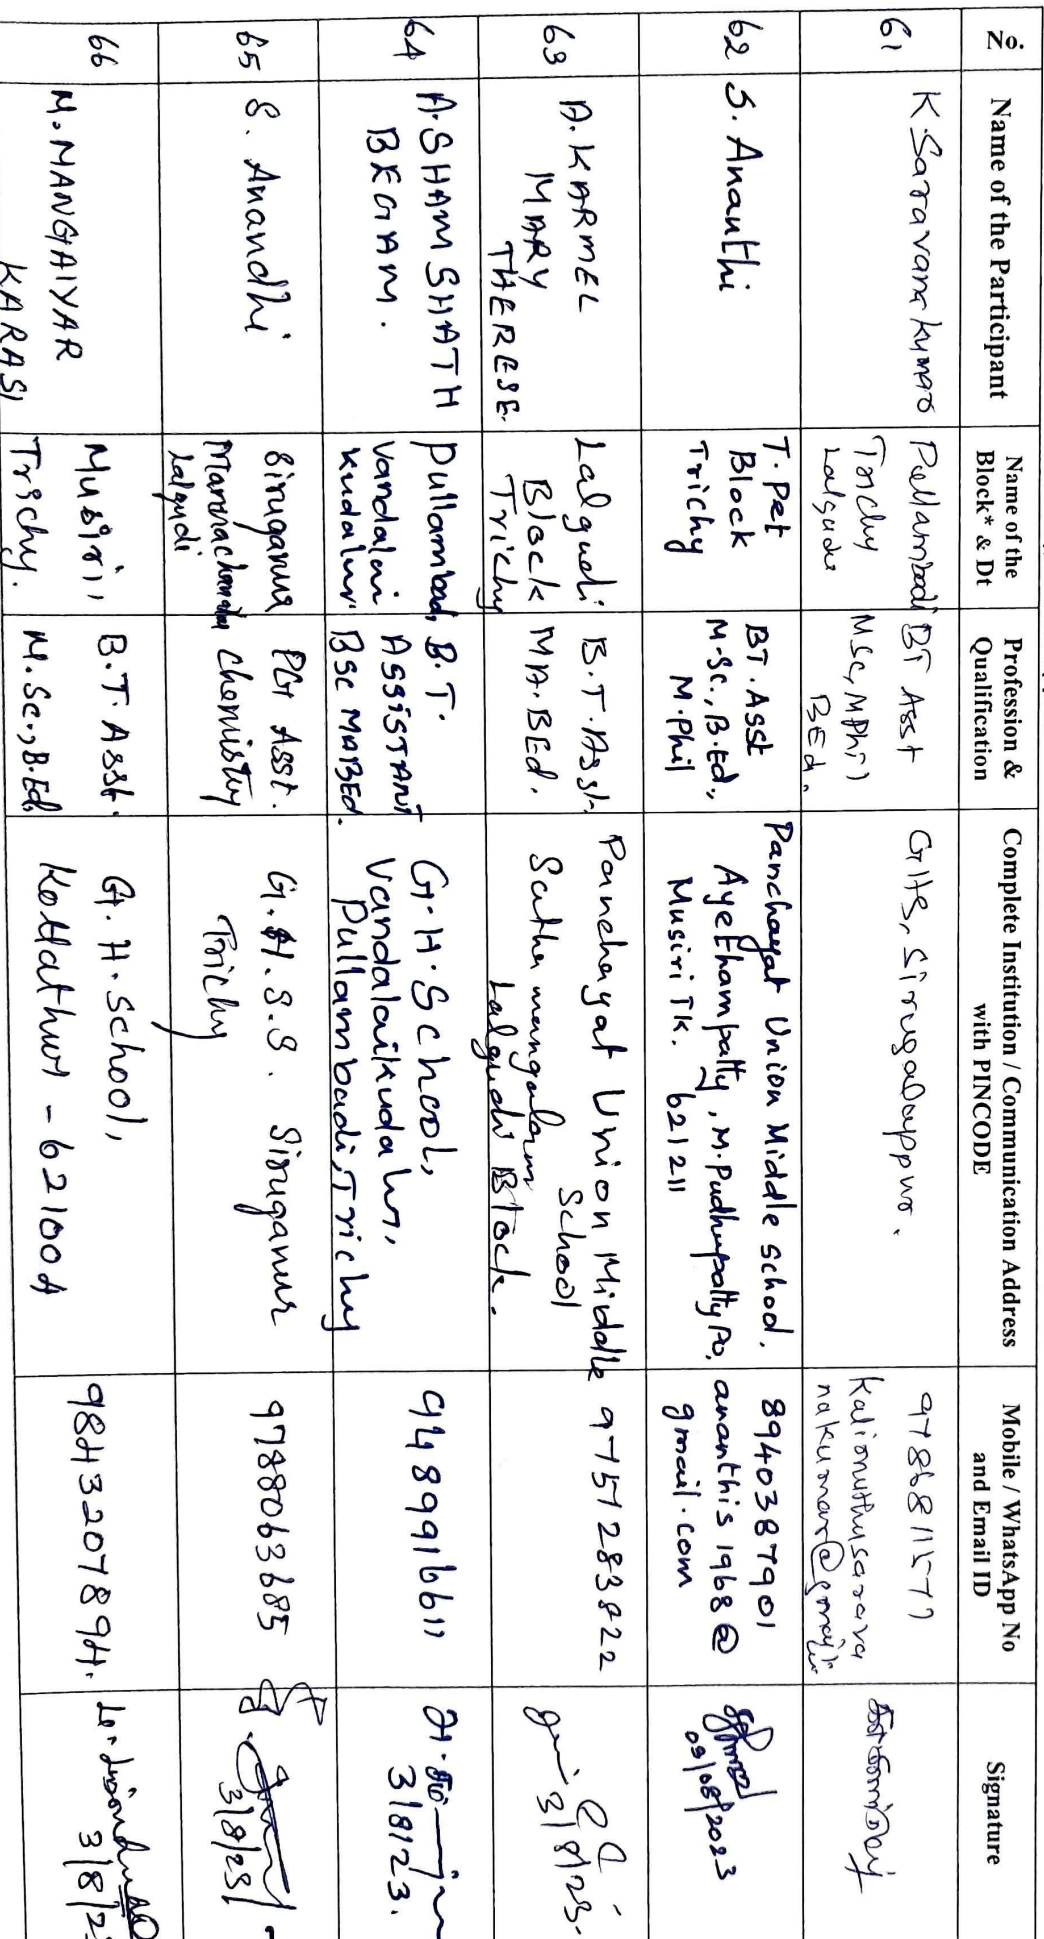 No.
Name of the Participant
Name of the
Block* & Dt
Profession &
Qualification
Complete Institution / Communication Address
with PINCODE
Mobile / WhatsApp No
and Email ID
Signature
61
K. Saravana kumar
Pullambadi
Trichy
Lalgudi
BT Asst
MSc, MPhil
BEd,
GHS, Sirugalappur.
9786811577
nakumar@gmail
62
S. Ananthi
T. Pet
Block
Trichy
BT. Asst
M.Sc., B.Ed.,
M.Phil
Panchayat Union Middle School,
Ayethampatty, M. Pudhupatty Po,
Musiri Tk. 621211
8940387901
ananthis1968@
gmail.com
03/08/2023
63
A. KARMEL
MARY
THERESE.
Lalgudi
Block
Trichy
B.T. Asst.
MA. BEd.
Panchayat Union Middle
School
Lalgudi Block.
9751283822
3/8/23.
64
A. SHAMSHATH
BEGAM.
Pullambadi,
Vandalai
Kudalur
B.T.
ASSISTANT
BSc MABEd.
G.H. School,
Vandalaikudalur,
Pullambadi, Trichy
9489916611
3/8/23.
65
S. Anandhi
Siruganur
Lalgudi
PG Asst.
Chemistry
G.H.S.S. Siruganur
Trichy
9788063685
3/8/23
66
M. MANGAIYAR
KARASI
Musiri,
Trichy.
B.T. Asst.
M.Sc., B.Ed.
G.H. School,
Kottathur - 621004
9843207894.
3/8/2